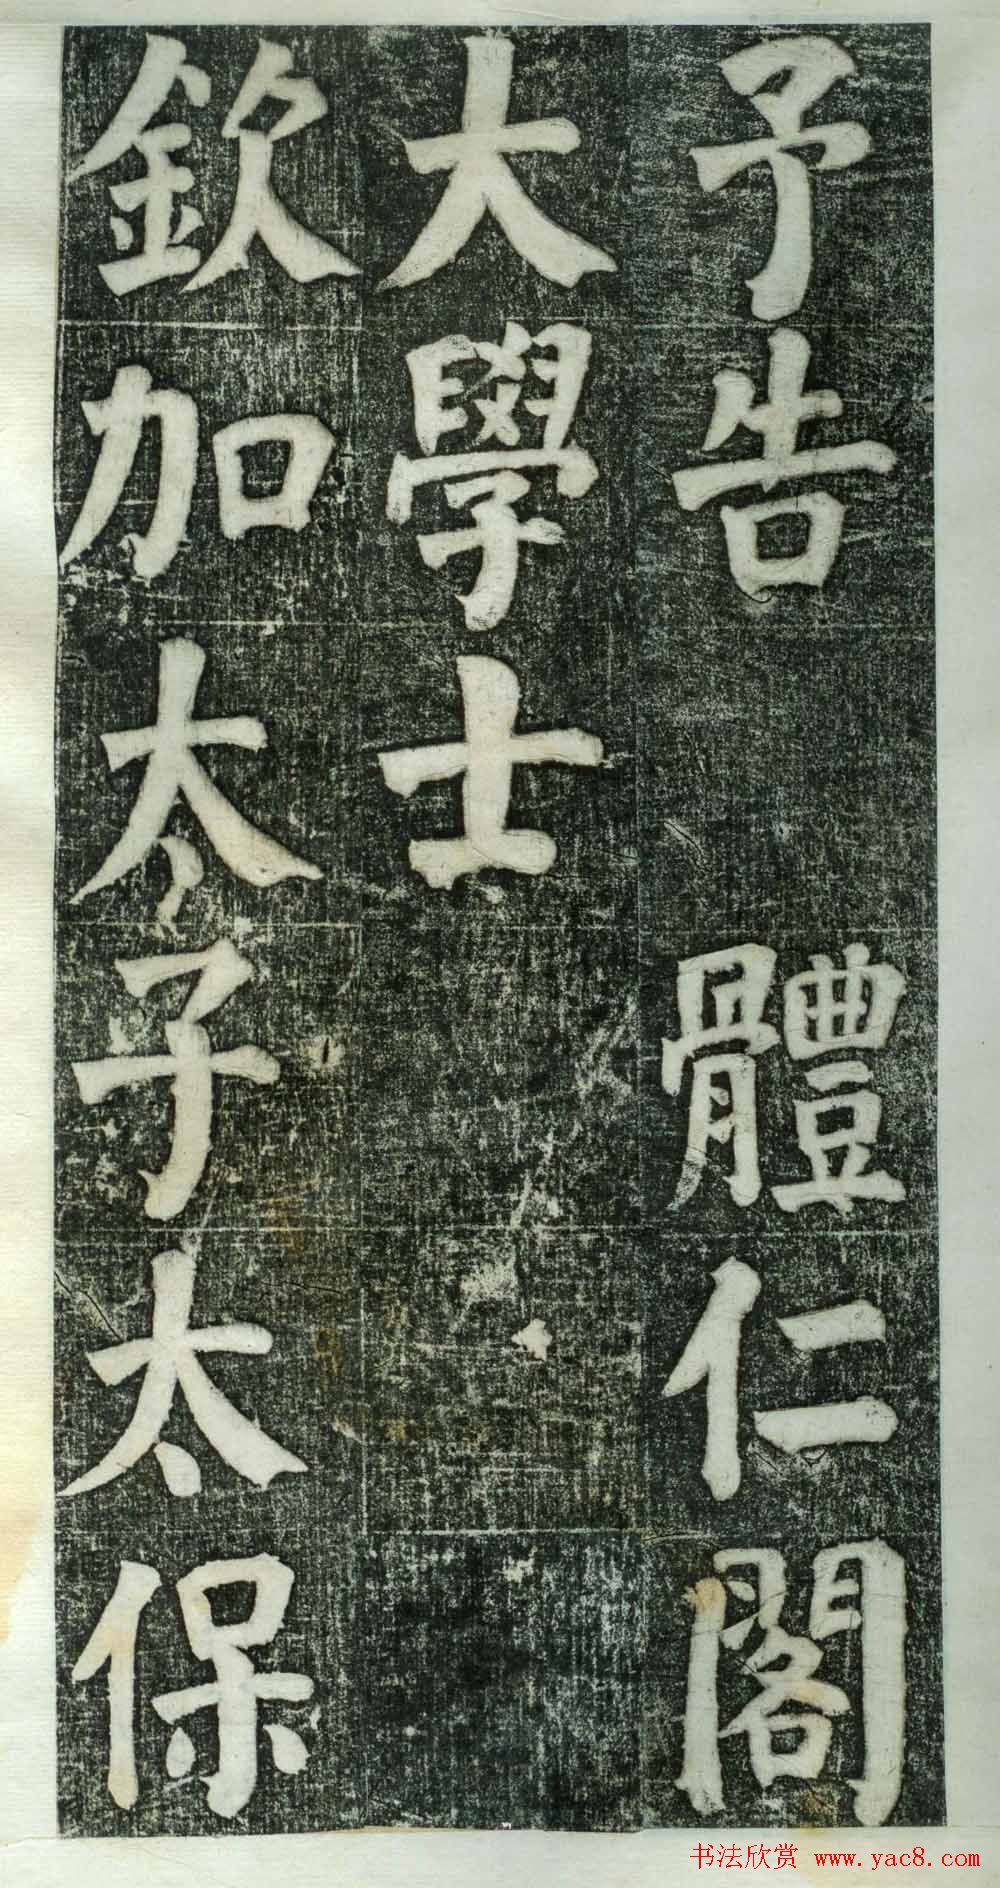 予告體仁閣
大學士
欽加太子太保
书法欣赏 www.yac8.com